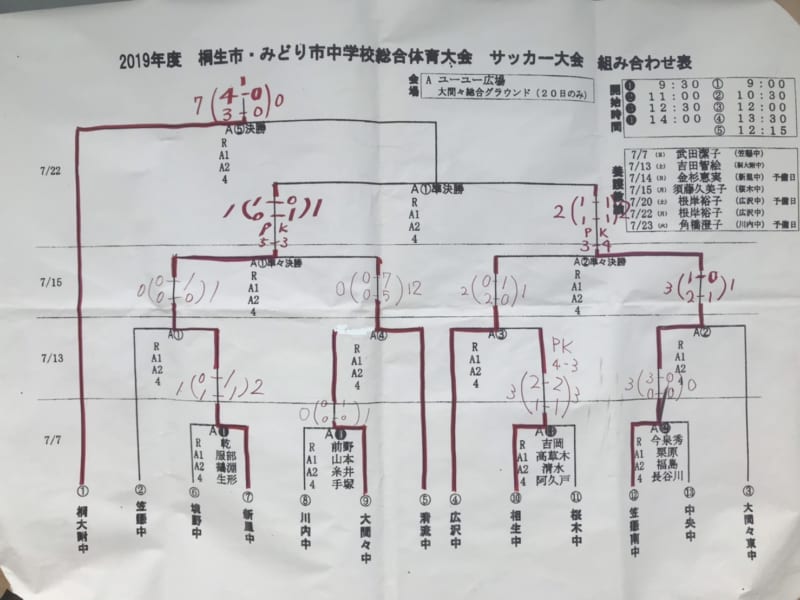 2019年度 桐生市・みどり市中学校総合体育大会 サッカー大会 組み合わせ表
会場 A ユーユー広場
大間々総合グラウンド(20日のみ)
開始時間
❶ 9:30 ① 9:00
❷ 11:00 ② 10:30
❸ 12:30 ③ 12:00
❹ 14:00 ④ 13:30
⑤ 12:15
7/7 (日) 武田潔子 (笠懸中)
7/13 (土) 吉田智絵 (桐大附中)
7/14 (日) 金杉恵実 (新里中) 予備日
7/15 (月) 須藤久美子 (桜木中)
7/20 (土) 根岸裕子 (広沢中) 予備日
7/22 (月) 根岸裕子 (広沢中)
7/23 (火) 角橋澄子 (川内中) 予備日
1
7 ( 4-0 ) 0
3-0
A⑤決勝
R
A1
A2
4
7/22
A①準決勝
R
A1
A2
4
1 ( 1 0 ) 1
0 1
P K
5-3
2 ( 1 1 ) 2
1 1
P K
3-4
A①準々決勝
R
A1
A2
4
A②準々決勝
R
A1
A2
4
7/15
0 ( 0 1 ) 1
0 0
0 ( 0 7 ) 12
0 5
2 ( 0 1 ) 1
2 0
3 ( 1 0 ) 1
2 1
A①
R
A1
A2
4
A④
R
A1
A2
4
A③
R
A1
A2
4
A②
R
A1
A2
4
7/13
PK
4-3
1 ( 0 1 ) 2
1 1
0 ( 0 1 ) 1
0 0
3 ( 2-2 ) 3
1 1
3 ( 3-0 ) 0
0 0
7/7
R 乾
A1 服部
A2 鶴淵
4 生形
R 前野
A1 山本
A2 糸井
4 手塚
R 吉岡
A1 高草木
A2 清水
4 阿久戸
R 今泉秀
A1 栗原
A2 福島
4 長谷川
① 桐大附中
② 笠懸中
⑥ 境野中
⑦ 新里中
⑧ 川内中
⑨ 大間々中
⑤ 清流中
④ 広沢中
⑩ 相生中
⑪ 桜木中
⑫ 笠懸南中
⑬ 中央中
③ 大間々東中